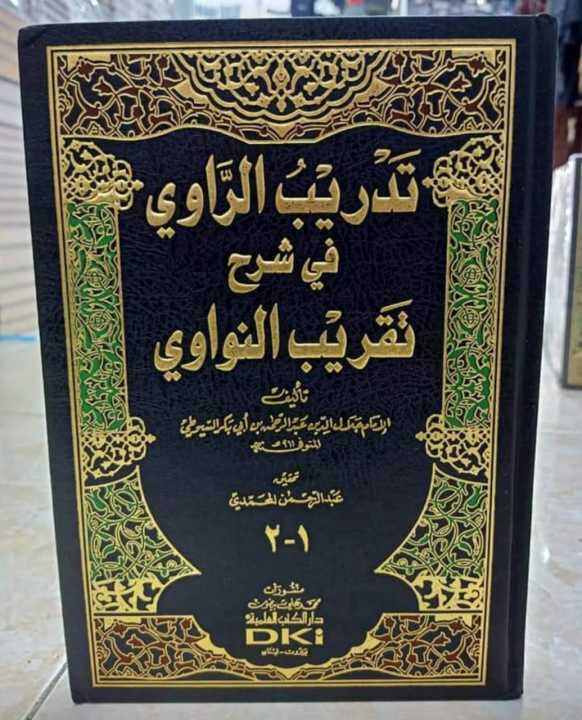 تَدْرِيْبُ الرَّاوِي
فِي شرح
تَقرِيْب النواوي
تأليف
الإمام جلال الدين عبد الرحمن بن أبي بكر السيوطي
المتوفى ٩١١ هـ
تحقيق
عبد الرحمن المحمدي
١-٢
منشورات
محمد علي بيضون
دار الكتب العلمية
DKi
بيروت - لبنان